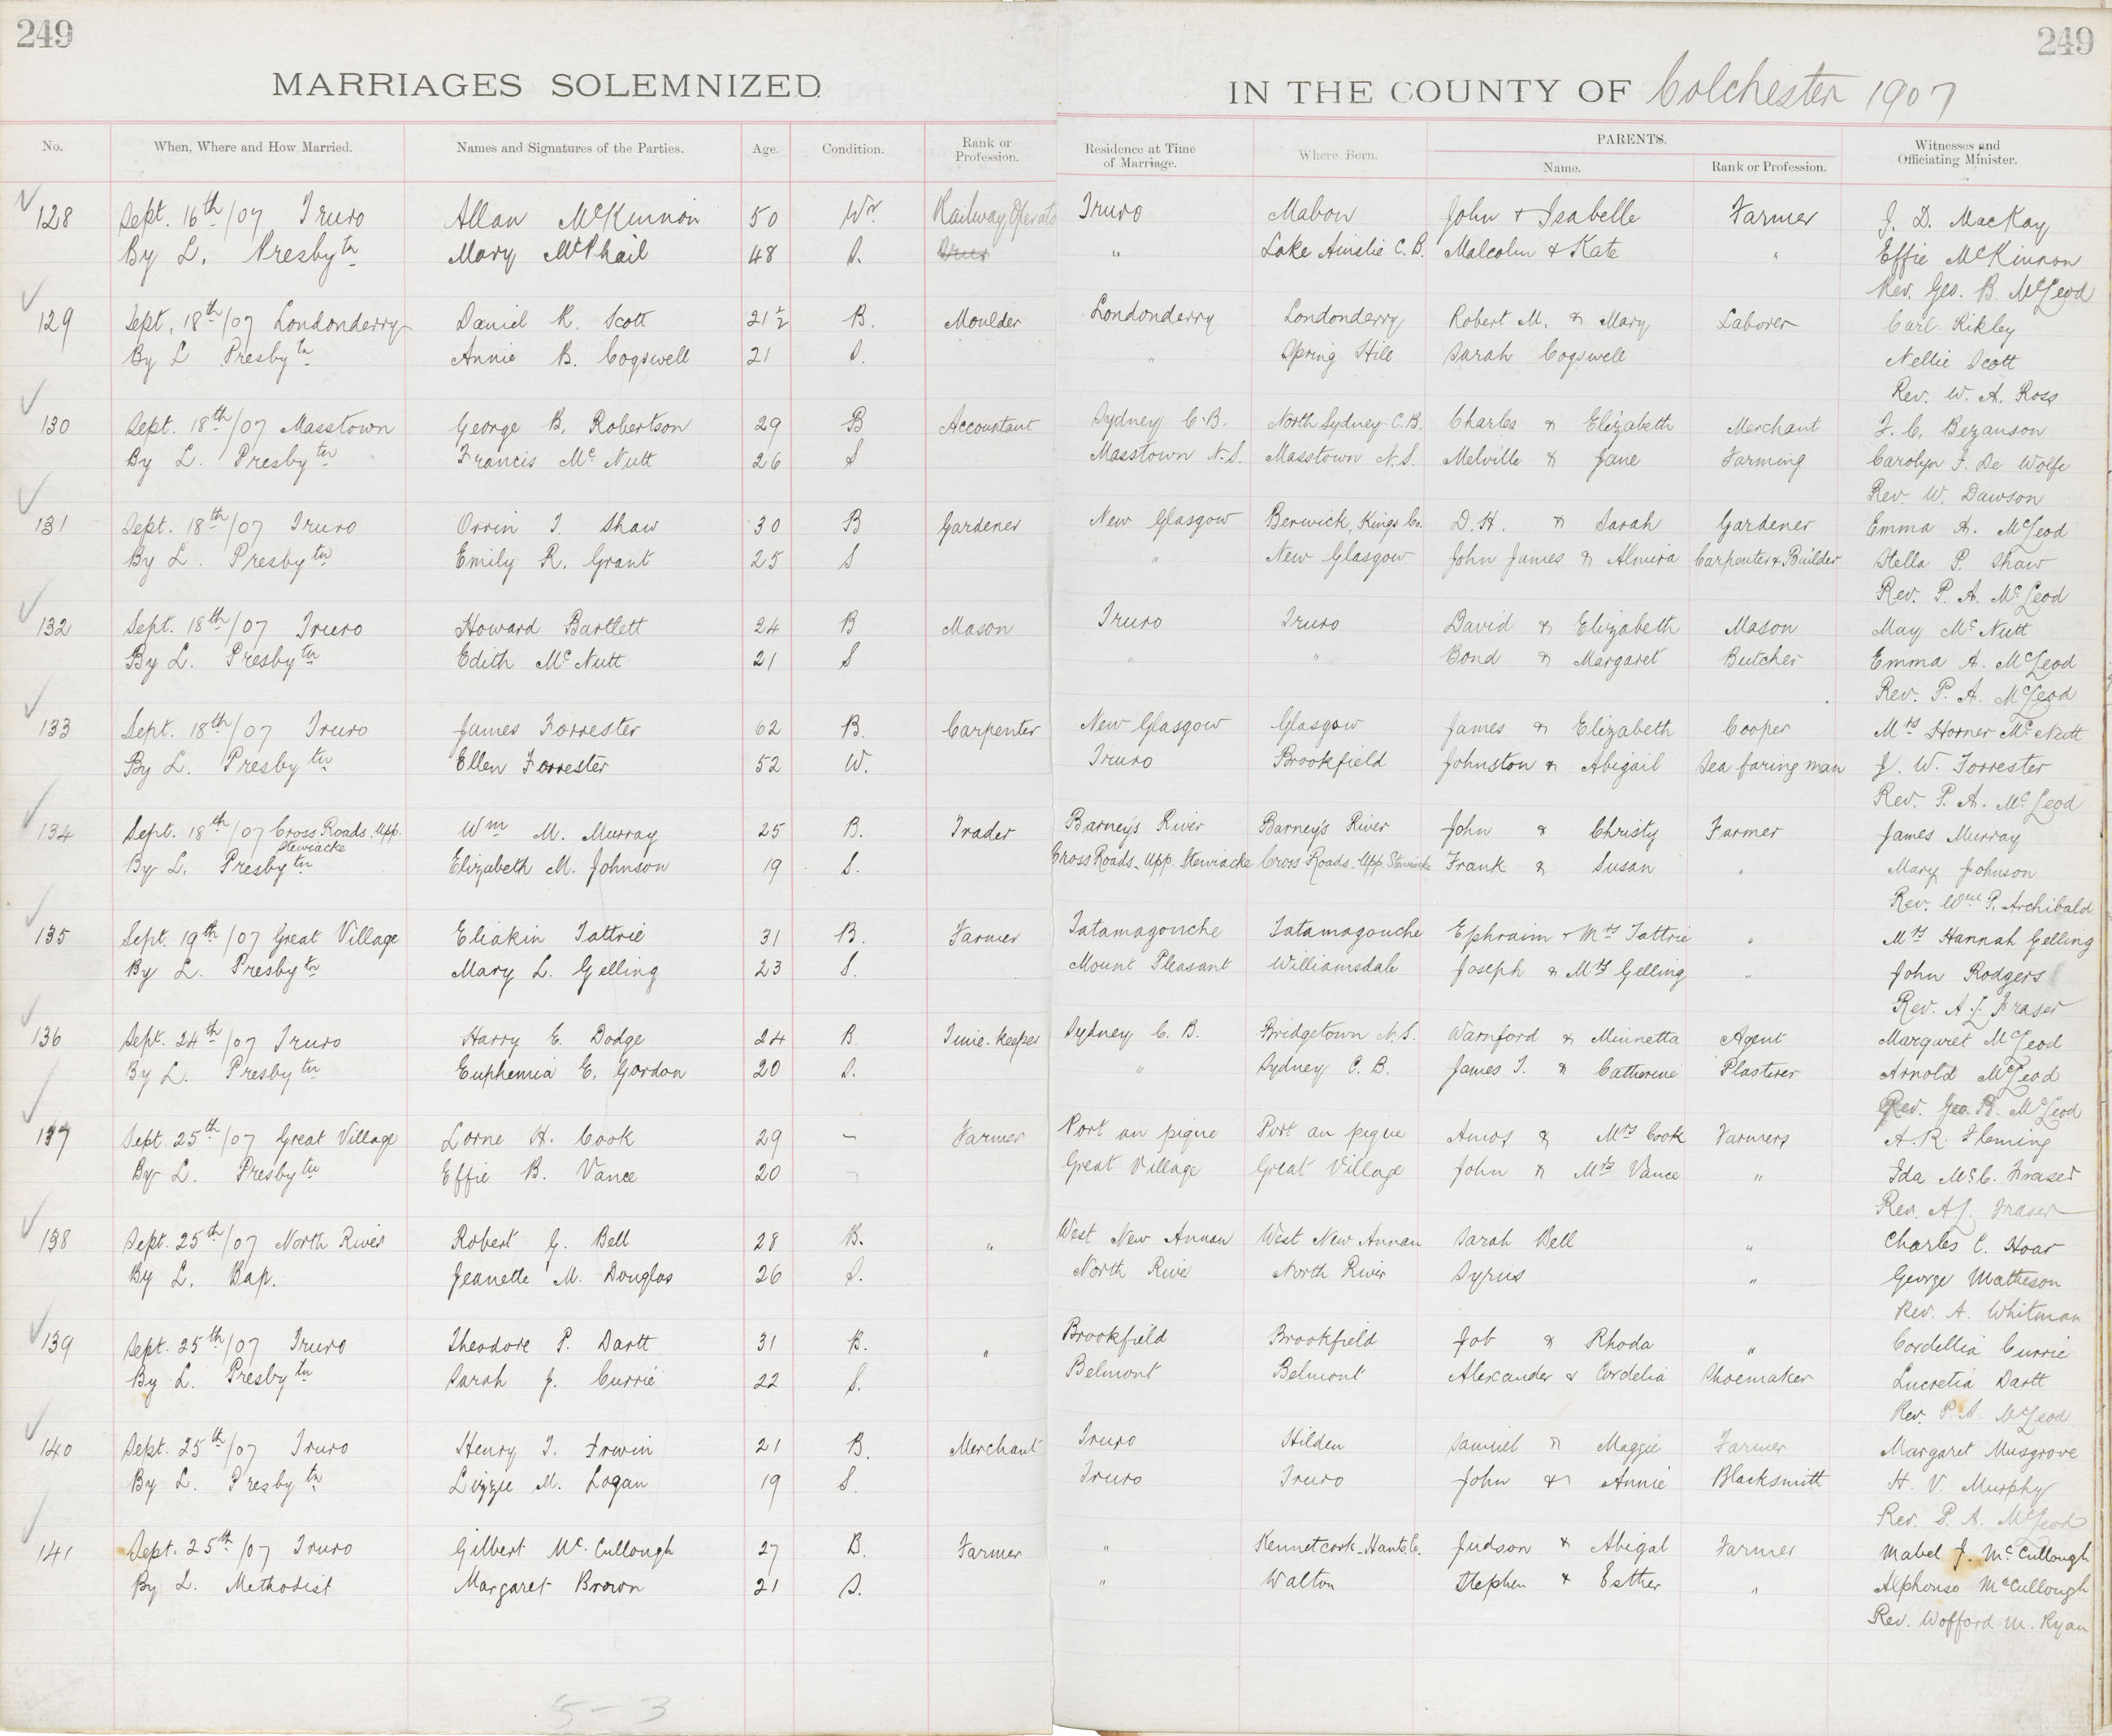 249 249
MARRIAGES SOLEMNIZED IN THE COUNTY OF Colchester 1907
No. When, Where and How Married. Names and Signatures of the Parties. Age. Condition. Rank or Profession. Residence at Time of Marriage. Where Born. PARENTS. Name. Rank or Profession. Witnesses and Officiating Minister.
128 Sept. 16th/07 Truro Allan McKinnon 50 Wr. Railway Operato Truro Mabou John & Isabelle Farmer J. D. MacKay
By L. Presbytn Mary McPhail 48 S. " Lake Ainslie C.B. Malcolm & Kate " Effie McKinnon
Rev. Geo. B. McLeod
129 Sept. 18th/07 Londonderry Daniel R. Scott 21½ B. Moulder Londonderry Londonderry Robert M. & Mary Laborer Carl Kikley
By L Presbytn Annie B. Cogswell 21 S. " Spring Hill Sarah Cogswell Nellie Scott
Rev. W. A. Ross
130 Sept. 18th/07 Masstown George B. Robertson 29 B Accountant Sydney C.B. North Sydney C.B. Charles & Elizabeth Merchant F. C. Bezanson
By L. Presbytn Francis Mc Nutt 26 S Masstown N.S. Masstown N.S. Melville & Jane Farming Carolyn F. De Wolfe
Rev W. Dawson
131 Sept. 18th/07 Truro Orrin T. Shaw 30 B Gardener New Glasgow Berwick, Kings Co. D.H. & Sarah Gardener Emma A. McLeod
By L. Presbytn Emily R. Grant 25 S " New Glasgow John James & Almira Carpenter & Builder Stella P. Shaw
Rev. P. A. McLeod
132 Sept. 18th/07 Truro Howard Bartlett 24 B Mason Truro Truro David & Elizabeth Mason May McNutt
By L. Presbytn Edith McNutt 21 S " " Bond & Margaret Butcher Emma A. McLeod
Rev. P. A. McLeod
133 Sept. 18th/07 Truro James Forrester 62 B. Carpenter New Glasgow Glasgow James & Elizabeth Cooper Mrs Horner McNutt
By L. Presbytn Ellen Forrester 52 W. Truro Brookfield Johnston & Abigail Sea faring man J. W. Forrester
Rev. P. A. McLeod
134 Sept. 18th/07 Cross Roads. Upp. Stewiacke Wm M. Murray 25 B. Trader Barney's River Barney's River John & Christy Farmer James Murray
By L. Presbytn Elizabeth M. Johnson 19 S. Cross Roads. Upp. Stewiacke Cross Roads. Upp. Stewiacke Frank & Susan " Mary Johnson
Rev. Wm P. Archibald
135 Sept. 19th/07 Great Village Eliakin Tattrie 31 B. Farmer Tatamagouche Tatamagouche Ephraim & Mrs Tattrie " Mrs Hannah Gelling
By L. Presbytn Mary L. Gelling 23 S. Mount Pleasant Williamsdale Joseph & Mrs Gelling " John Rodgers
Rev. A. L. Fraser
136 Sept. 24th/07 Truro Harry E. Dodge 24 B. Time-keeper Sydney C. B. Bridgetown N.S. Warnford & Minnetta Agent Margaret McLeod
By L. Presbytn Euphemia E. Gordon 20 S. " Sydney C. B. James T. & Catherine Plasterer Arnold McLeod
Rev. Geo. B. McLeod
137 Sept. 25th/07 Great Village Lorne H. Cook 29 – Farmer Port au pique Port au pique Amos & Mrs Cook Farmers A. R. Fleming
By L. Presbytn Effie B. Vance 20 – Great Village Great Village John & Mrs Vance " Ida McC. Fraser
Rev. A L Fraser
138 Sept. 25th/07 North River Robert G. Bell 28 B. " West New Annan West New Annan Sarah Bell " Charles C. Hoar
By L. Bap. Jeanette M. Douglas 26 S. North River North River Syrus " George Matheson
Rev. A. Whitman
139 Sept. 25th/07 Truro Theodore P. Dartt 31 B. " Brookfield Brookfield Job & Rhoda " Cordellia Currie
By L. Presbytn Sarah J. Currie 22 S. Belmont Belmont Alexander & Cordelia Shoemaker Lucretia Dartt
Rev. P. A. McLeod
140 Sept. 25th/07 Truro Henry T. Irwin 21 B. Merchant Truro Hilden Samuel & Maggie Farmer Margaret Musgrove
By L. Presbytn Lizzie M. Logan 19 S. Truro Truro John & Annie Blacksmith H. V. Murphy
Rev. P. A. McLeod
141 Sept. 25th/07 Truro Gilbert McCullough 27 B. Farmer " Kennetcook-Hants Co. Judson & Abigal Farmer Mabel J. McCullough
By L. Methodist Margaret Brown 21 S. " Walton Stephen & Esther " Alphonso McCullough
Rev. Wofford M. Ryan
5-3